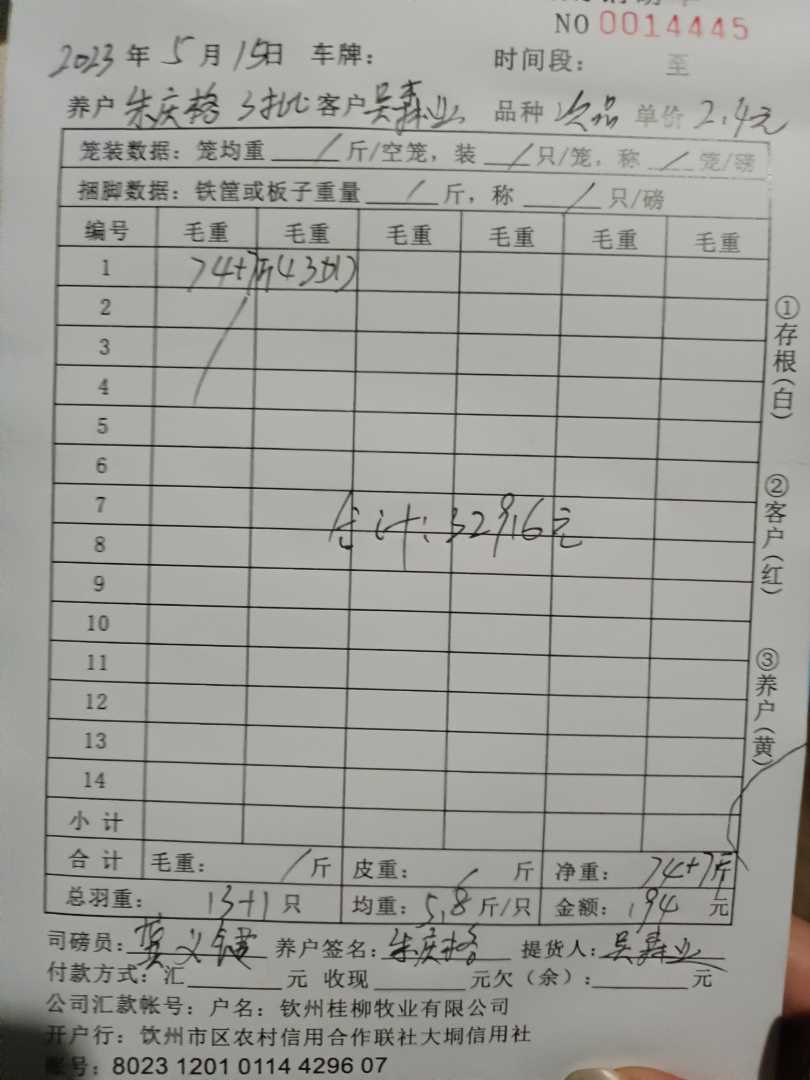 NO 0014445
2023 年 5 月 15日 车牌： 时间段： 至
养户 朱庆格 客户 吴森业 品种 次品 单价 2.4元
笼装数据：笼均重 / 斤/空笼，装 / 只/笼，称 / 笼/磅
捆脚数据：铁筐或板子重量 / 斤，称 / 只/磅
编号 毛重 毛重 毛重 毛重 毛重 毛重
1 74+7斤(13+1)
2
3
4
5
6
7
合计：329.16元
8
9
10
11
12
13
14
小计
合计 毛重： / 斤 皮重： / 斤 净重： 74+7斤
总羽重： 13+1 只 均重： 5.8 斤/只 金额： 194 元
司磅员： 养户签名：朱庆格 提货人：吴森业
付款方式：汇 元 收现 元欠（余）： 元
公司汇款帐号：户名：钦州桂柳牧业有限公司
开户行：饮州市区农村信用合作联社大垌信用社
账号：8023 1201 0114 4296 07
①存根(白)
②客户(红)
③养户(黄)